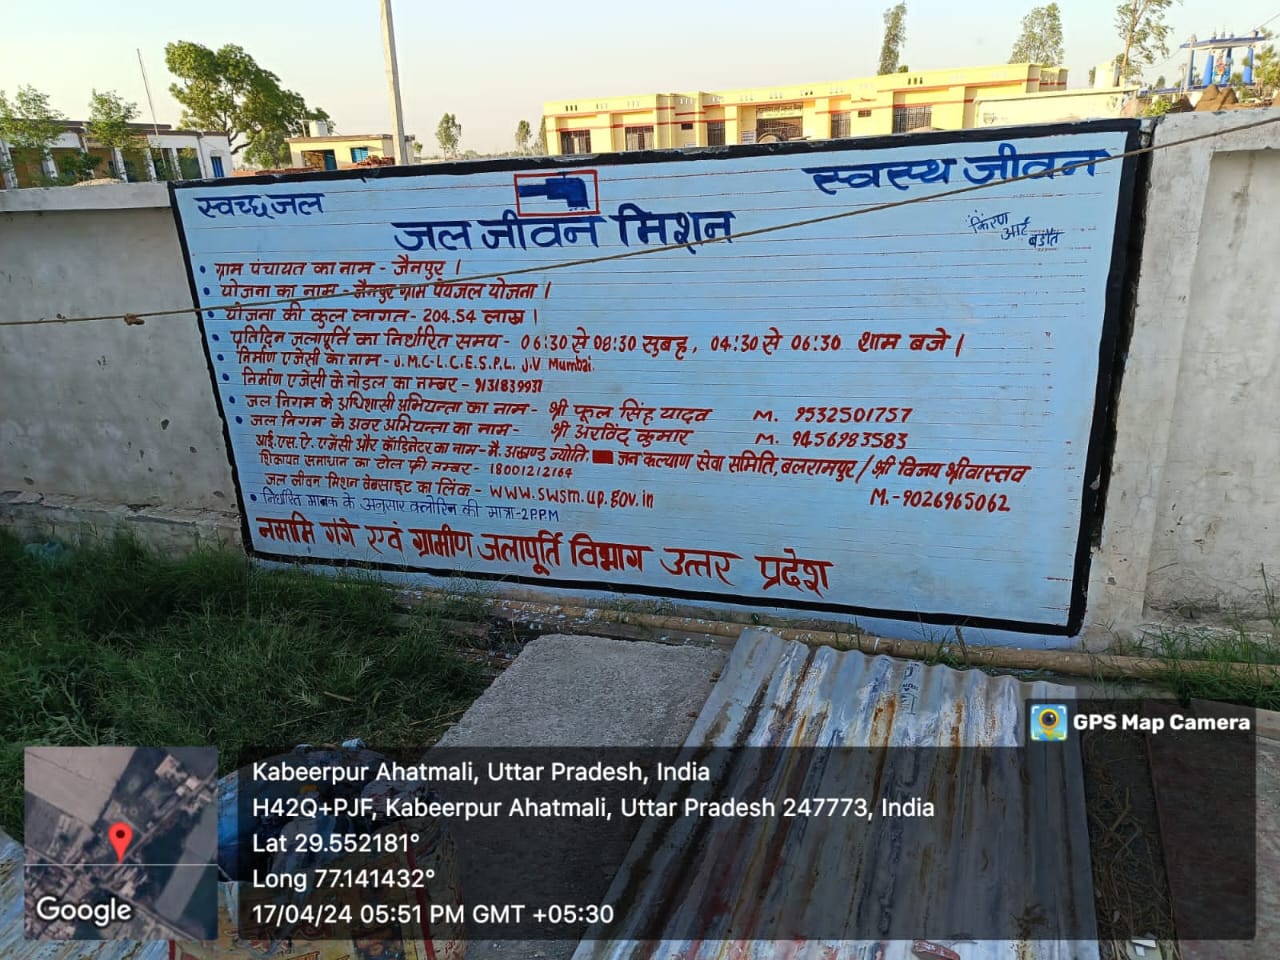 स्वच्छ जल
स्वस्थ जीवन
जल जीवन मिशन
किरण
आर्ट
बडौत
• ग्राम पंचायत का नाम - जैनपुर ।
• योजना का नाम - जैनपुर ग्राम पेयजल योजना ।
• योजना की कुल लागत - 204.54 लाख ।
• प्रतिदिन जलापूर्ति का निर्धारित समय - 06:30 से 08:30 सुबह, 04:30 से 06:30 शाम बजे ।
• निर्माण एजेंसी का नाम - J.M.C-L.C.E.S.P.L. J.V Mumbai.
• निर्माण एजेंसी के नोडल का नम्बर - 9131839931
• जल निगम के अधिशासी अभियन्ता का नाम - श्री फूल सिंह यादव M. 9532501757
• जल निगम के अवर अभियन्ता का नाम - श्री अरविंद कुमार M. 9456983583
आई.एस.ऐ. एजेंसी और कॉडिनेटर का नाम - मै. अखण्ड ज्योति, जन कल्याण सेवा समिति, बलरामपुर / श्री विजय श्रीवास्तव
शिकायत समाधान का टोल फ्री नम्बर - 18001212164
M.- 9026965062
जल जीवन मिशन वेबसाइट का लिंक - www.swsm.up.gov.in
• निर्धारित मानक के अनुसार क्लोरिन की मात्रा - 2PPM
नमामि गंगे एवं ग्रामीण जलापूर्ति विभाग उत्तर प्रदेश
GPS Map Camera
Kabeerpur Ahatmali, Uttar Pradesh, India
H42Q+PJF, Kabeerpur Ahatmali, Uttar Pradesh 247773, India
Lat 29.552181°
Long 77.141432°
17/04/24 05:51 PM GMT +05:30
Google